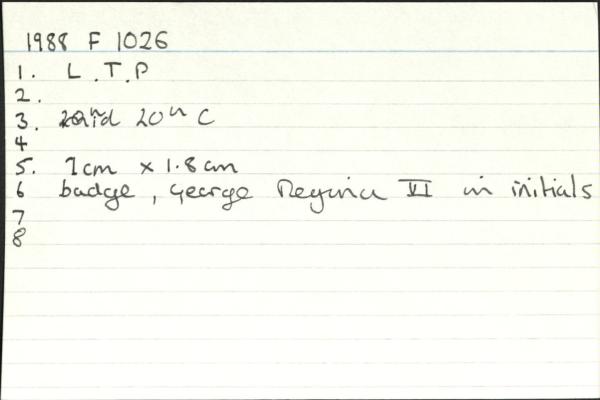 1988 F 1026
1. L.T.P
2.
3. mid 20th C
4
5. 7cm x 1.8cm
6 badge, George Regina VI in initials
7
8